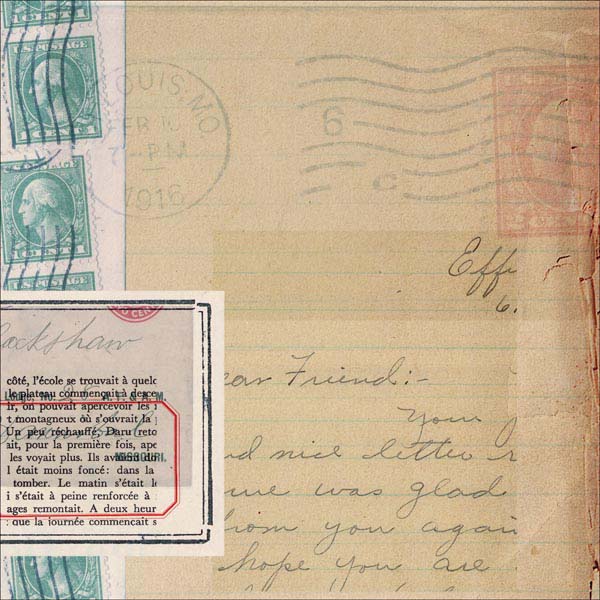 U.S. POSTAGE
OUIS, MO
6
P M
1916
C
ar Friend:-
Your
d nice letter
me was glad
from you again
hope you are
ockshaw
côté, l'école se trouvait à quelc
le plateau commençait à desce
LODGE, NO. 25 A. F. & A. M.
ir, on pouvait apercevoir les
t montagneux où s'ouvrait la
Un peu réchauffé, Daru reto
ait, pour la première fois, ape
les voyait plus. Ils avaient
MISSOURI.
l était moins foncé: dans la
tomber. Le matin s'était l
i s'était à peine renforcée à
ages remontait. A deux heur
que la journée commençait s